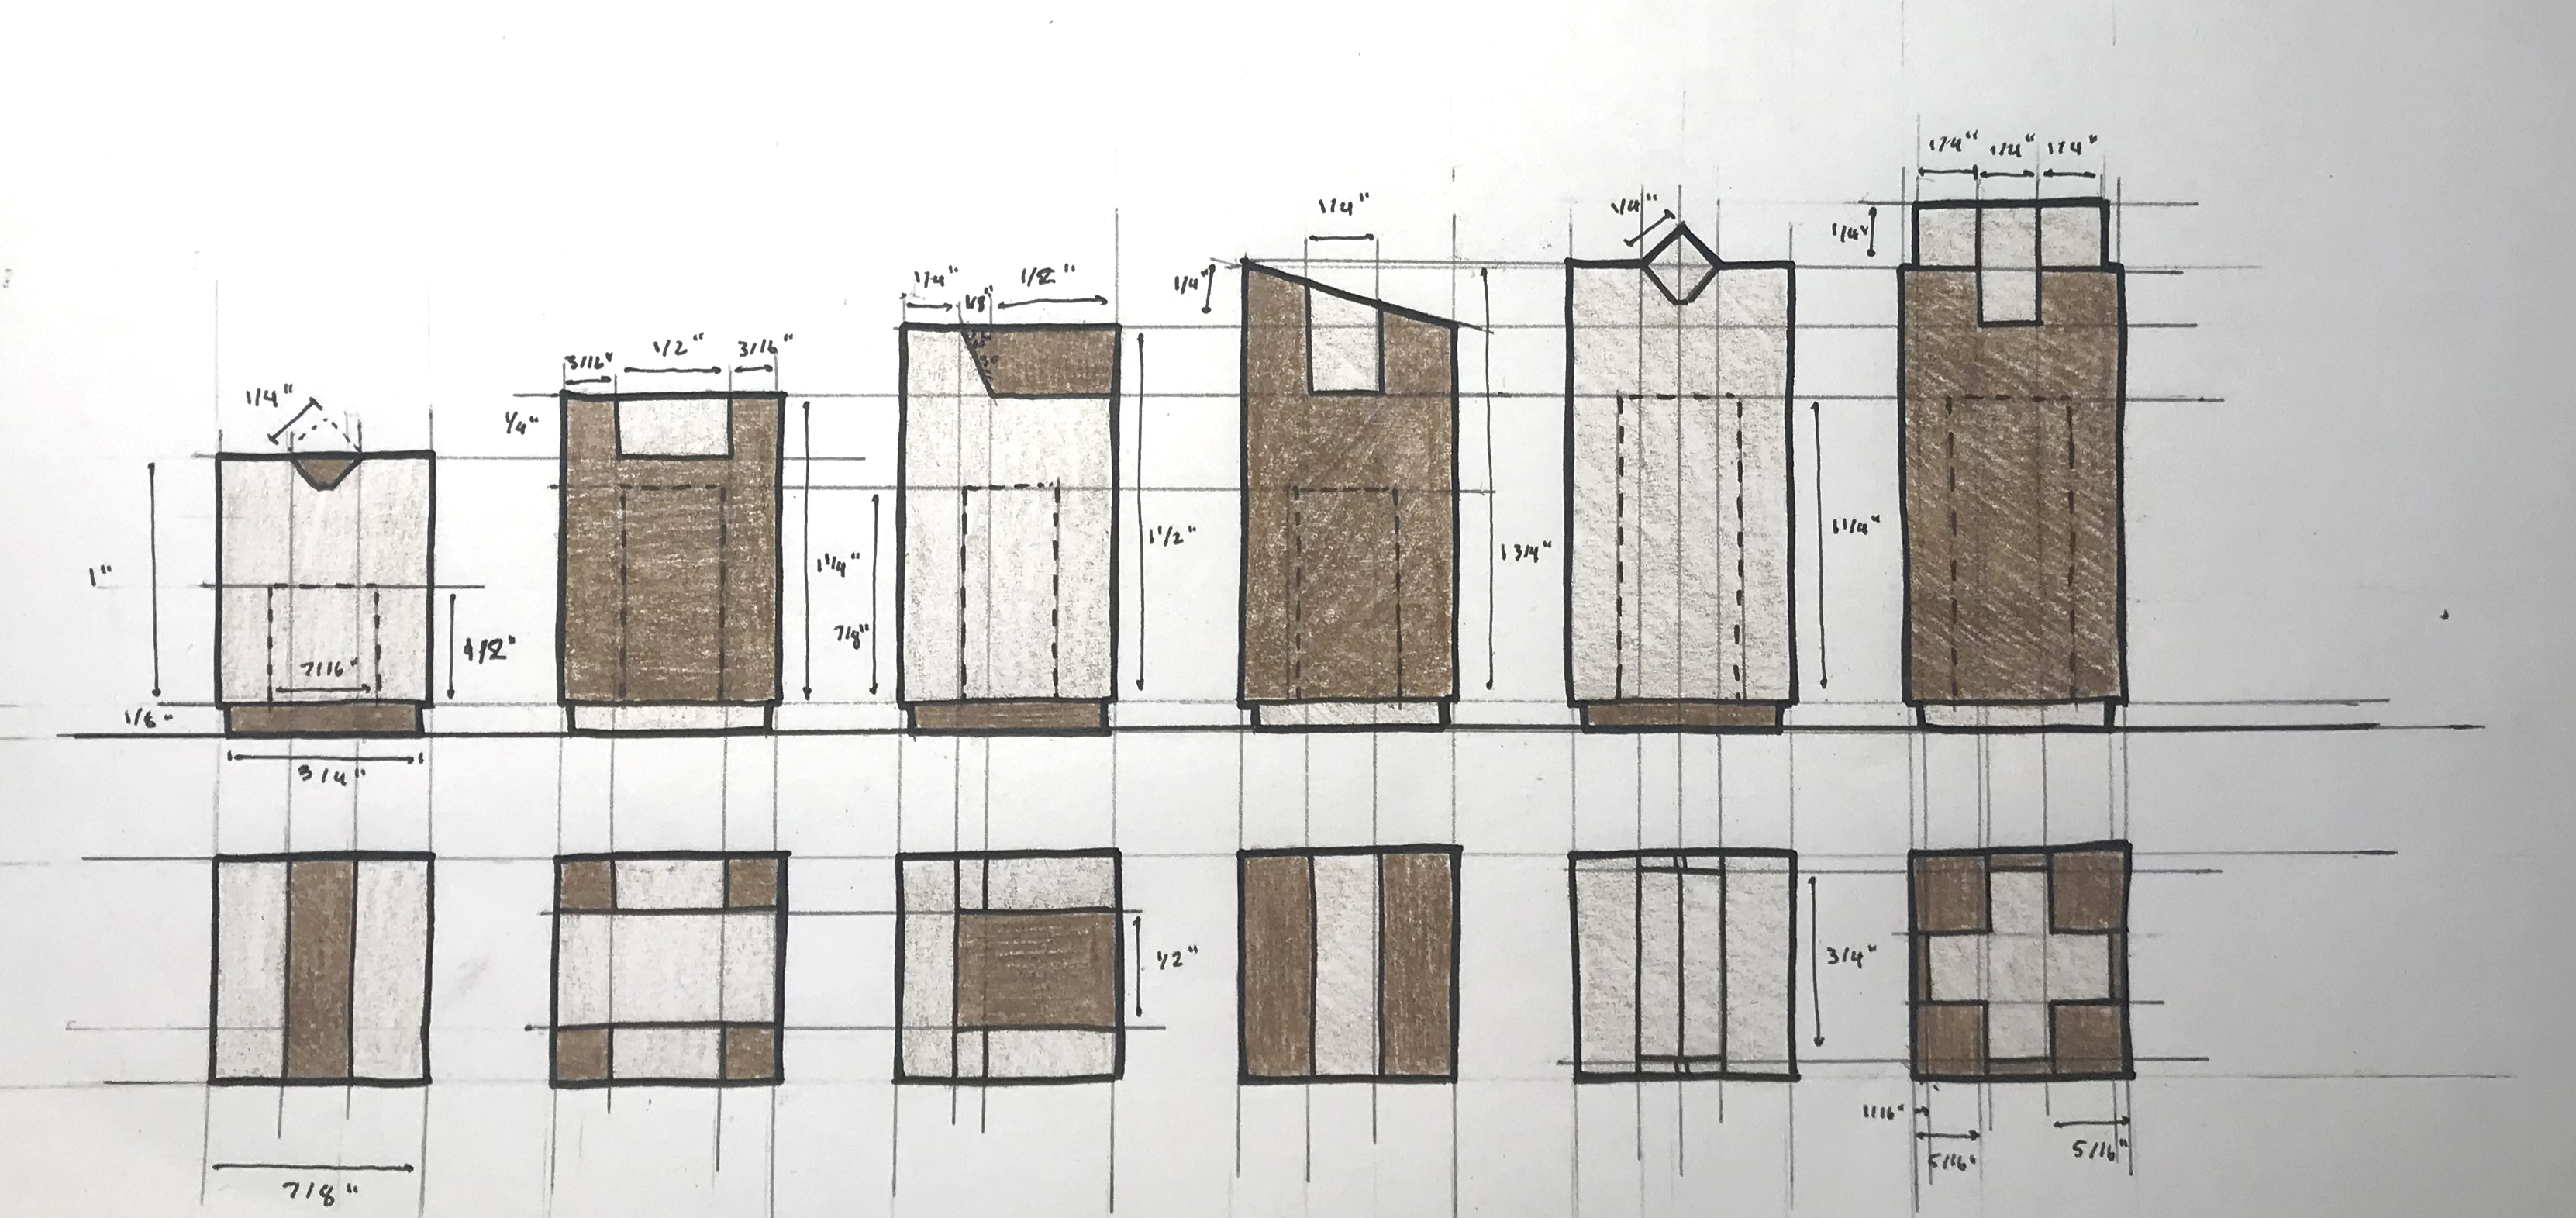 1/4"
1"
7/16"
1/2"
1/8"
3/4"
7/8"
3/16"
1/2"
3/16"
1/4"
1 1/4"
7/8"
1/4"
1/8"
1/2"
1 1/2"
1/2"
1/4"
1/4"
1 3/4"
1/4"
1 1/4"
3/4"
1/4"
1/4"
1/4"
1/4"
1/16"
5/16"
5/16"